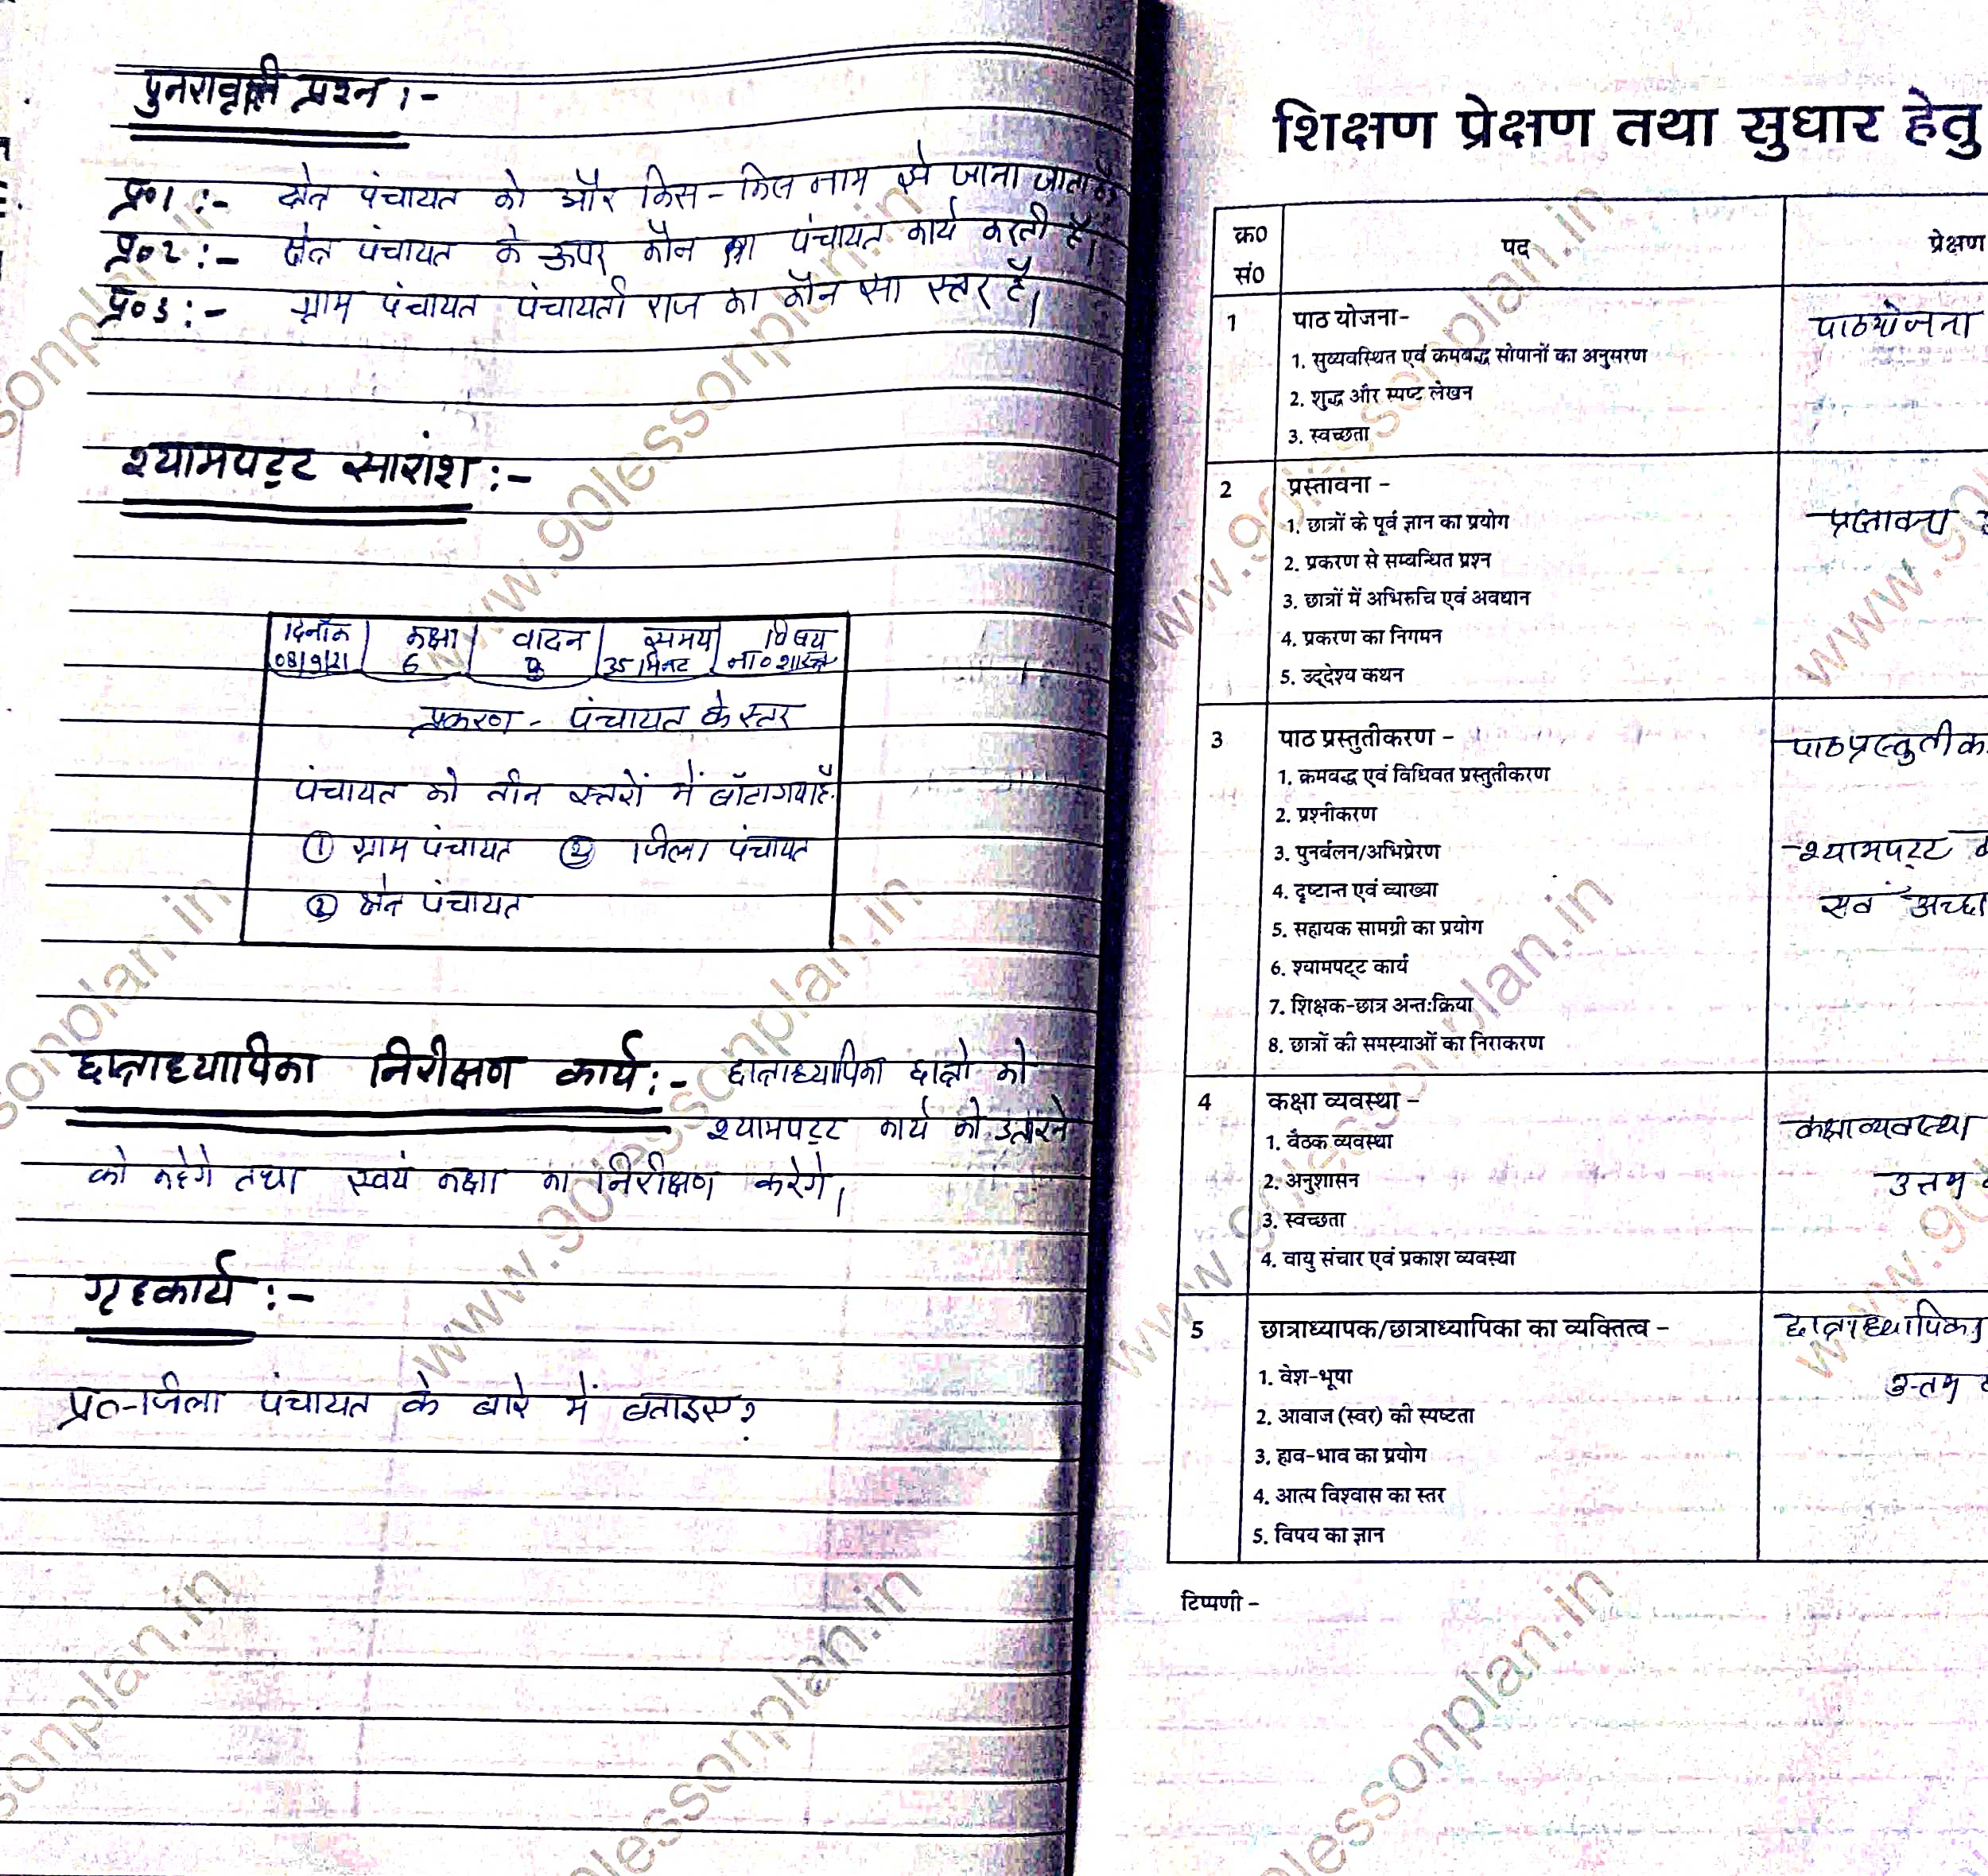 पुनरावृत्ति प्रश्न :-
प्र०1 :- क्षेत्र पंचायत को और किस-किस नाम से जाना जाता है
प्र०2 :- क्षेत्र पंचायत के ऊपर कौन सा पंचायत कार्य करती है।
प्र०3 :- ग्राम पंचायत पंचायती राज का कौन सा स्तर है।
श्यामपट्ट सारांश :-
दिनाँक | कक्षा | वादन | समय | विषय
08/9/21 | 6 | | 35 मिनट | ना० शास्त्र
प्रकरण - पंचायत के स्तर
पंचायत को तीन स्तरों में बाँटा गया है।
① ग्राम पंचायत जिला पंचायत
② क्षेत्र पंचायत
छात्राध्यापिका निरीक्षण कार्य :- छात्राध्यापिका छात्रो को
श्यामपट्ट कार्य को उतारने
को कहेगे तथा स्वयं कक्षा का निरीक्षण करेगे।
गृहकार्य :-
प्र०-जिला पंचायत के बारे में बताइए?
शिक्षण प्रेक्षण तथा सुधार हेतु
क्र० सं० | पद | प्रेक्षण
1 पाठ योजना- पाठयोजना
1. सुव्यवस्थित एवं क्रमबद्ध सोपानों का अनुसरण
2. शुद्ध और स्पष्ट लेखन
3. स्वच्छता
2 प्रस्तावना - प्रस्तावना
1. छात्रों के पूर्व ज्ञान का प्रयोग
2. प्रकरण से सम्बन्धित प्रश्न
3. छात्रों में अभिरुचि एवं अवधान
4. प्रकरण का निगमन
5. उद्देश्य कथन
3 पाठ प्रस्तुतीकरण - पाठप्रस्तुतीक
1. क्रमवद्ध एवं विधिवत प्रस्तुतीकरण
2. प्रश्नीकरण
3. पुनर्बलन/अभिप्रेरण श्यामपट्ट
4. दृष्टान्त एवं व्याख्या
5. सहायक सामग्री का प्रयोग
6. श्यामपट्ट कार्य
7. शिक्षक-छात्र अन्त:क्रिया
8. छात्रों की समस्याओं का निराकरण
4 कक्षा व्यवस्था - कक्षा व्यवस्था
1. बैठक व्यवस्था
2. अनुशासन उत्तम
3. स्वच्छता
4. वायु संचार एवं प्रकाश व्यवस्था
5 छात्राध्यापक/छात्राध्यापिका का व्यक्तित्व - छात्राध्यापिका
1. वेश-भूषा
2. आवाज (स्वर) की स्पष्टता उत्तम
3. हाव-भाव का प्रयोग
4. आत्म विश्वास का स्तर
5. विषय का ज्ञान
टिप्पणी -
www.90lessonplan.in